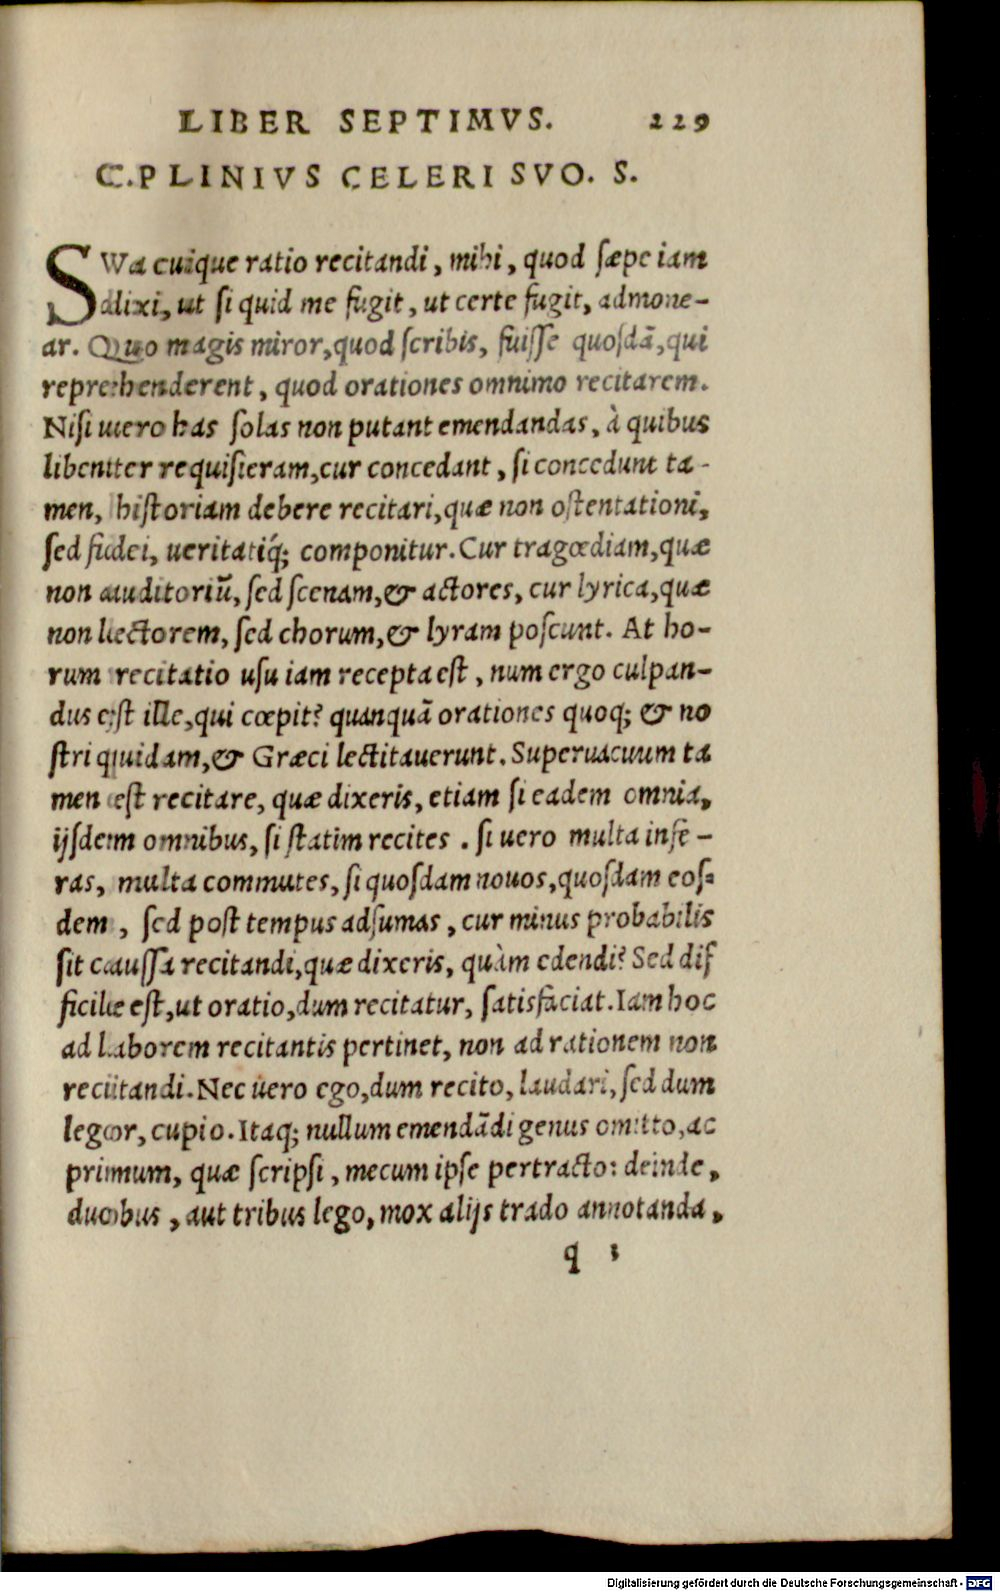 LIBER SEPTIMVS. 229
C.PLINIVS CELERI SVO. S.
SVa cuique ratio recitandi, mihi, quod sæpe iam
dixi, ut si quid me fugit, ut certe fugit, admone-
ar. Quo magis miror, quod scribis, fuisse quosdã, qui
reprehenderent, quod orationes omnino recitarem.
Nisi uero has solas non putant emendandas, à quibus
libenter requisieram, cur concedant, si concedunt ta-
men, historiam debere recitari, quæ non ostentationi,
sed fidei, ueritatiq́; componitur. Cur tragœdiam, quæ
non auditoriũ, sed scenam, & actores, cur lyrica, quæ
non lectorem, sed chorum, & lyram poscunt. At ho-
rum recitatio usu iam recepta est, num ergo culpan-
dus est ille, qui cœpit? quanquã orationes quoq; & no
stri quidam, & Græci lectitauerunt. Superuacuum ta
men est recitare, quæ dixeris, etiam si eadem omnia,
ijsdem omnibus, si statim recites. si uero multa inse-
ras, multa commutes, si quosdam nouos, quosdam eos-
dem, sed post tempus adsumas, cur minus probabilis
sit caussa recitandi, quæ dixeris, quàm edendi? Sed dif
ficile est, ut oratio, dum recitatur, satisfaciat. Iam hoc
ad laborem recitantis pertinet, non ad rationem non
recitandi. Nec uero ego, dum recito, laudari, sed dum
legor, cupio. Itaq; nullum emendãdi genus omitto, ac
primum, quæ scripsi, mecum ipse pertracto: deinde,
duobus, aut tribus lego, mox alijs trado annotanda,
q 3
Digitalisierung gefördert durch die Deutsche Forschungsgemeinschaft - DFG